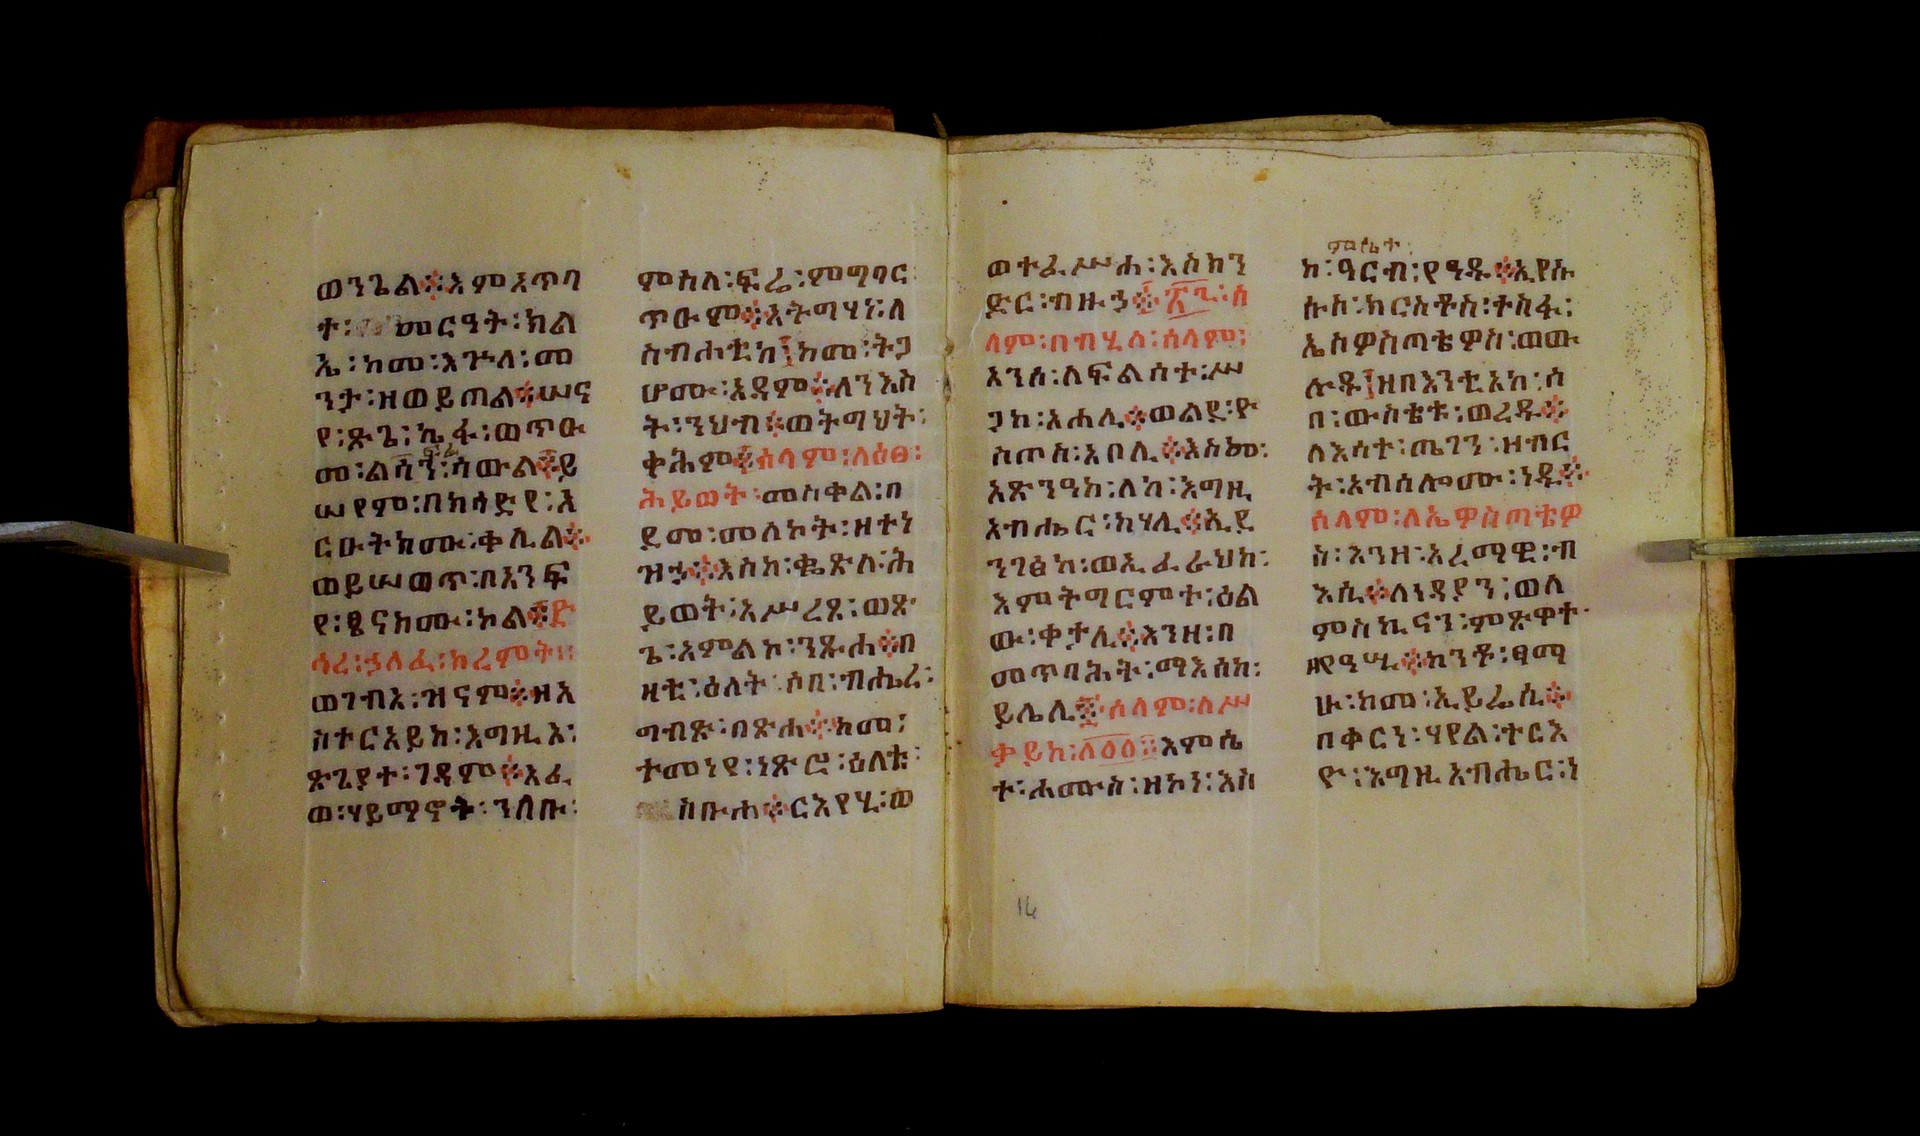 ወንጌል፨እምእጥባ
ት፡መርዓት፡ክል
ኤ፡ከመ፡እጕለ፡መ
ንታ፡ዘወይጠል፨ሠና
የ፡ጽጌ፡ኬፋ፡ወጥዑ
መ፡ልሳን፡ሳውል፨ይ
ሠየም፡በክሳድየ፡አ
ርዑትክሙ፡ቀሊል፨
ወይሠወጥ፡በአንፍ
የ፡ፄናክሙ፡ኮል፨
ሳረ፡ኃለፈ፡ክረምት፡፡
ወገብአ፡ዝናም፨ዘአ
ስተርአይከ፡እግዚአ፡
ጽጌያተ፡ገዳም፨አፈ
ወ፡ሃይማኖት፡ንለቡ፡
ምስለ፡ፍሬ፡ምግባር
ጥዑም፨አትግሃነ፡ለ
ስብሐቲከ፡ከመ፡ትጋ
ሆሙ፡አዳም፨ለንእስ
ት፡ንህብ፨ወትግህት፡
ቀሕም፨ሰላም፡ለዕፀ፡
ሕይወት፡መስቀል፡በ
ደመ፡መለኮት፡ዘተነ
ዝኃ፨እስከ፡ቈጽለ፡ሕ
ይወት፡አሥረፀ፡ወጽ
ጌ፡አምልኮ፡ንጹሐ፨በ
ዛቲ፡ዕለት፡ሶበ፡ብሔረ፡
ግብጽ፡በጽሐ፨ከመ፡
ተመነየ፡ነጽሮ፡ዕለቱ፡
ስቡሐ፨ርእየሂ፡ወ
ወተፈሥሐ፡እስክን
ድር፡ብዙኃ፨፲፪፡ሰ
ላም፡በብሂለ፡ሰላም፡
እንሰ፡ለፍልሰተ፡ሥ
ጋከ፡አሐሊ፨ወልደ፡ዮ
ስጦስ፡አቦሊ፨እስመ፡
አጽንዓከ፡ለከ፡እግዚ
አብሔር፡ከሃሊ፨ኢደ
ንገፀከ፡ወኢፈራህከ፡
እምትግርምተ፡ዕል
ው፡ቀታሊ፨እንዘ፡በ
መጥባሕት፡ማእሰከ፡
ይሌሊ፨ሰላም፡ለሥ
ቃይከ፡ለዐዐ፡፡እምሴ
ተ፡ሐሙስ፡ዘኮነ፡እስ
ምሴተ፡
ከ፡ዓርብ፡የዓዱ፨ኢየሱ
ሱስ፡ክርስቶስ፡ተስፋ፡
ኤስዎስጣቴዎስ፡ወው
ሉዱ፡ዘበእንቲአከ፡ሰ
በ፡ውስቴቱ፡ወረዱ፨
ለእሳተ፡ጤገን፡ዘብር
ት፡አብሰሎሙ፡ነዱ፨
ሰላም፡ለኤዎስጣቴዎ
ስ፡እንዘ፡አረማዊ፡ብ
እሲ፨ለነዳያን፡ወለ
ምስኪናን፡ምጽዋተ፡
ዘየዓሢ፨ከንቶ፡ፃማ
ሁ፡ከመ፡ኢይሬሲ፨
በቀርነ፡ሃየል፡ተርእ
ዮ፡እግዚአብሔር፡ነ
14